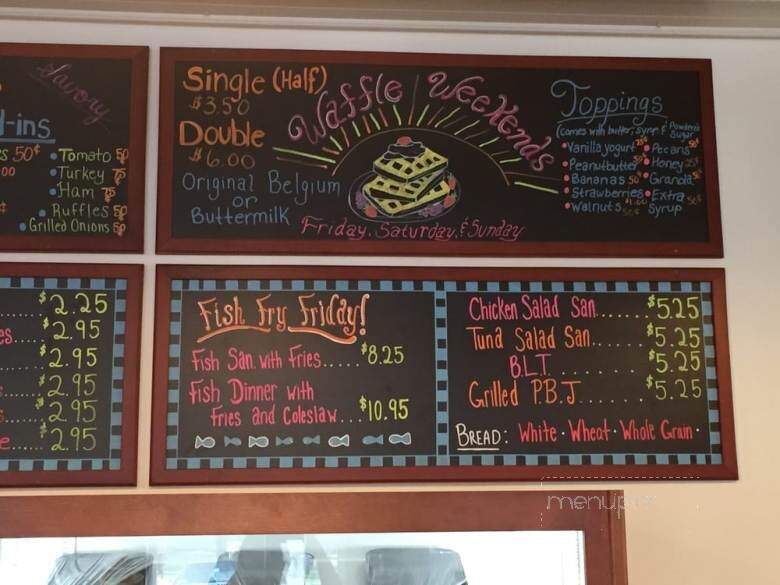 Savory
-ins
50¢
00
• Tomato 50
• Turkey 75
• Ham 75
• Ruffles 50
• Grilled Onions 50
Single (Half)
$3.50
Double
$6.00
Original Belgium
or
Buttermilk
Waffle Weekends
Friday, Saturday, & Sunday
Toppings
(comes with butter, syrup & Powdered
Sugar
• Vanilla yogurt
• Peanutbutter
• Bananas 50¢
• Strawberries
• Walnuts
• Pecans
• Honey
• Granola
• Extra
Syrup
$2.25
es..... $2.95
$2.95
$2.95
$2.95
e..... $2.95
Fish Fry Friday!
Fish San. with Fries..... $8.25
Fish Dinner with
Fries and Coleslaw... $10.95
Chicken Salad San...... $5.25
Tuna Salad San..... $5.25
B.L.T. ........ $5.25
Grilled P.B.J ....... $5.25
BREAD: White · Wheat · Whole Grain ·